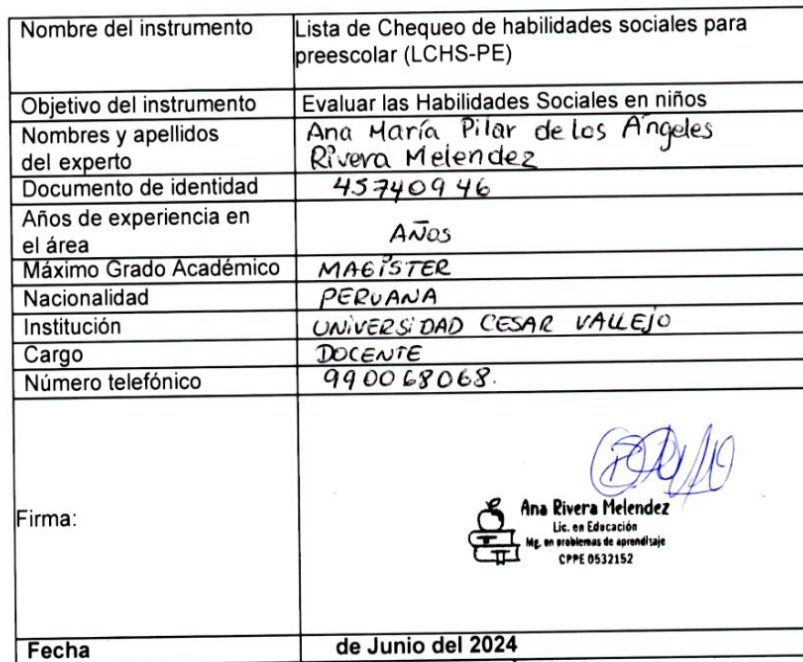 Nombre del instrumento
Lista de Chequeo de habilidades sociales para
preescolar (LCHS-PE)
Objetivo del instrumento
Evaluar las Habilidades Sociales en niños
Nombres y apellidos
del experto
Ana María Pilar de los Angeles
Rivera Melendez
Documento de identidad
45740946
Años de experiencia en
el área
AÑOS
Máximo Grado Académico
MAGÍSTER
Nacionalidad
PERUANA
Institución
UNIVERSIDAD CESAR VALLEJO
Cargo
DOCENTE
Número telefónico
990068068.
Firma:
Ana Rivera Melendez
Lic. en Educación
Mg. en problemas de aprendizaje
CPPE 0532152
Fecha
de Junio del 2024